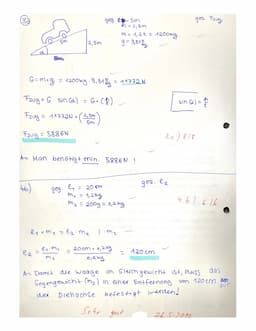 geg. l = 5m
ges. FZug
h = 2,5m
m = 1,2t = 1200kg
g = 9,81 N/kg
5m
2,5m
G = m·g = 1200kg · 9,81 N/kg = 11772N
FZug = G · sin(α) = G · (h/l)
sin(α) = h/l
FZug = 11772N · (2,5m/5m)
FZug = 5886N
A: Man benötigt min. 5886N!
4b)
geg. l₁ = 20cm
ges. l₂
m₁ = 1,2kg
m₂ = 200g = 0,2kg
4b) 6/6
l₁ · m₁ = l₂ · m₂ | : m₂
l₂ = l₁ · m₁ / m₂ = 20cm · 1,2kg / 0,2kg = 120cm
A: Damit die Waage im Gleichgewicht ist, muss das
Gegengewicht (m₂) in einer Entfernung von 120cm
der Drehachse befestigt werden!
Sehr gut